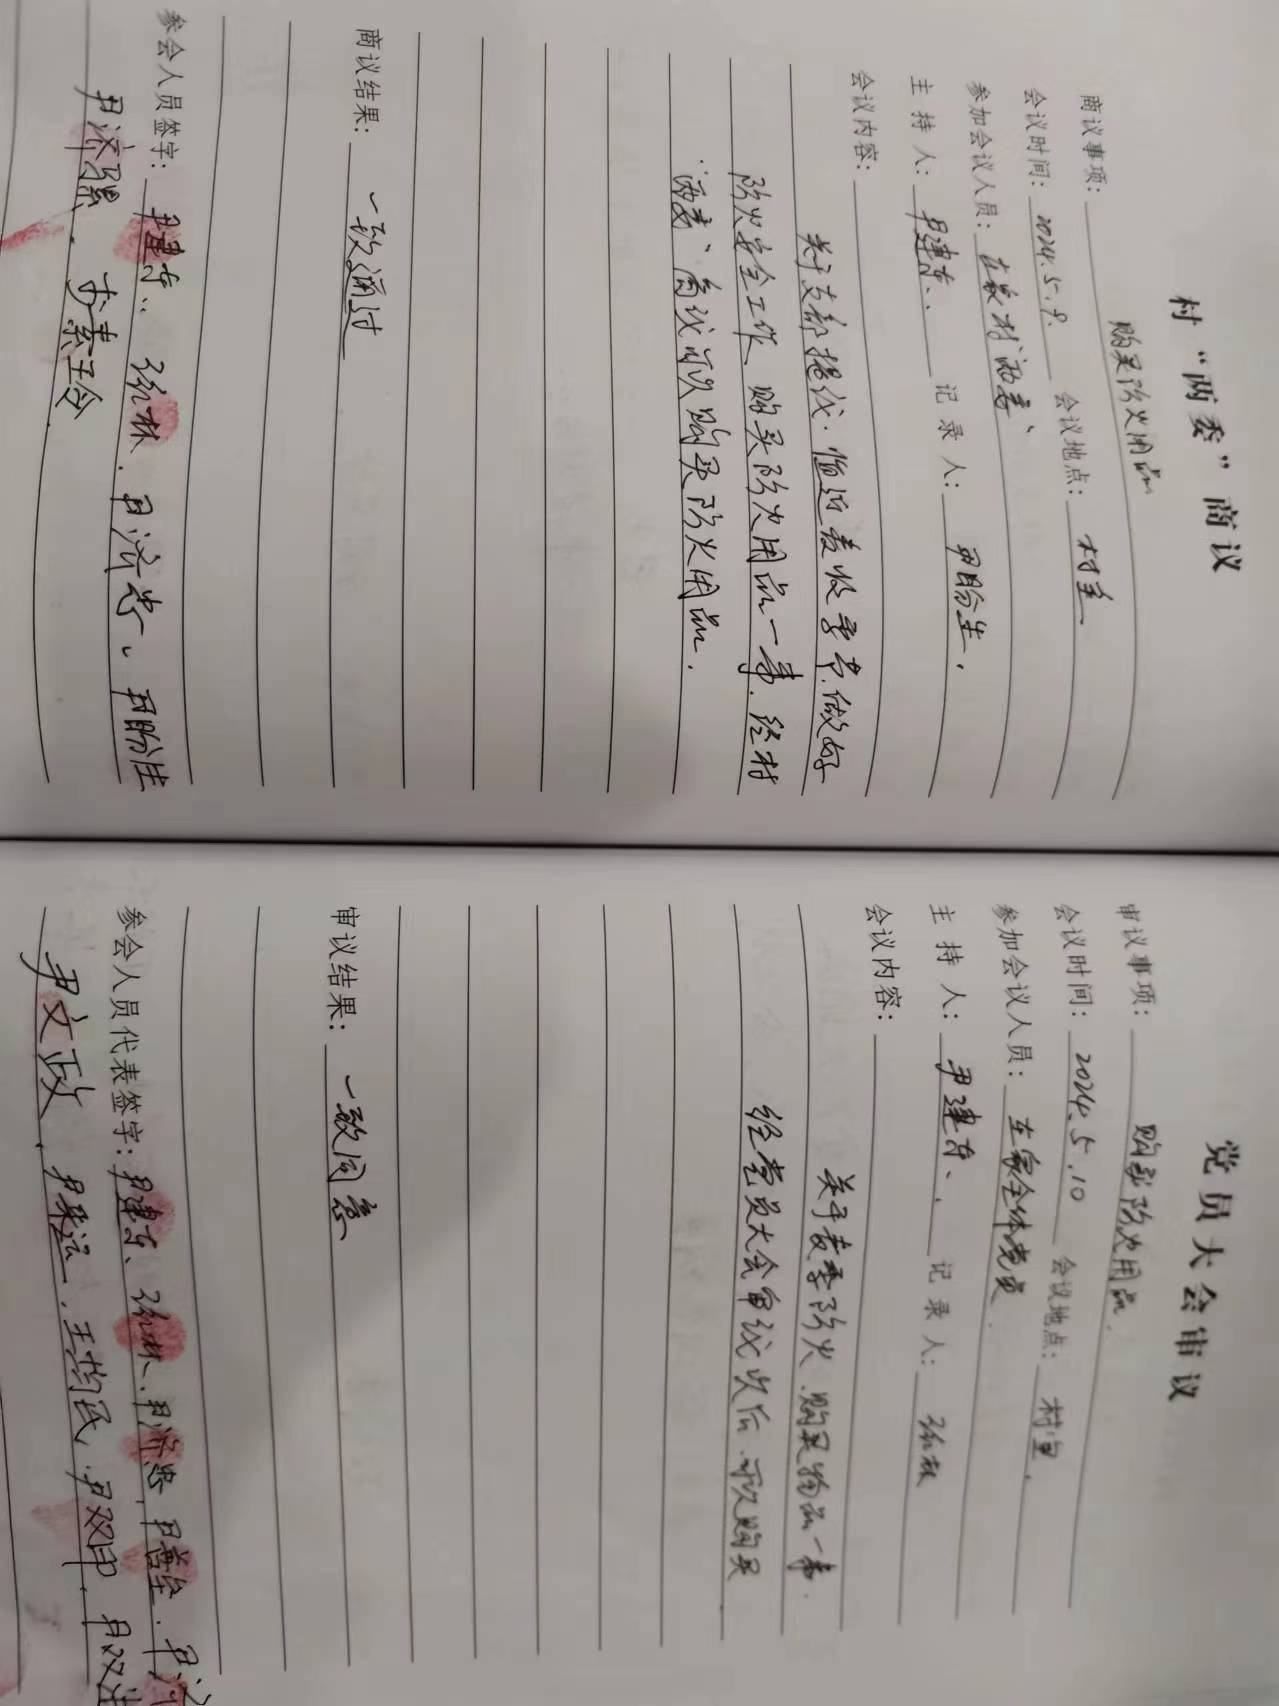 村“两委”商议
商议事项：购买防火用品
会议时间：2024.5.9. 会议地点：村室
参加会议人员：在家村两委、
主持人：尹建东、 记录人：尹盼生.
会议内容：
关于支部提议.临近麦收季节.做好
防火安全工作、购买防火用品一事.经村
两委、商议可以购买防火用品.
商议结果：一致通过
参会人员签字：尹建东、 尹济忠、尹盼生
党员大会审议
审议事项：购买防火用品.
会议时间：2024.5.10 会议地点：村室.
参加会议人员：在家全体党员.
主持人：尹建东、 记录人：
会议内容：
关于麦季防火.购买物品一事.
经党员大会审议以后.可以购买
审议结果：一致同意
参会人员代表签字：尹建东、 尹济忠.
尹文政. 尹双印.